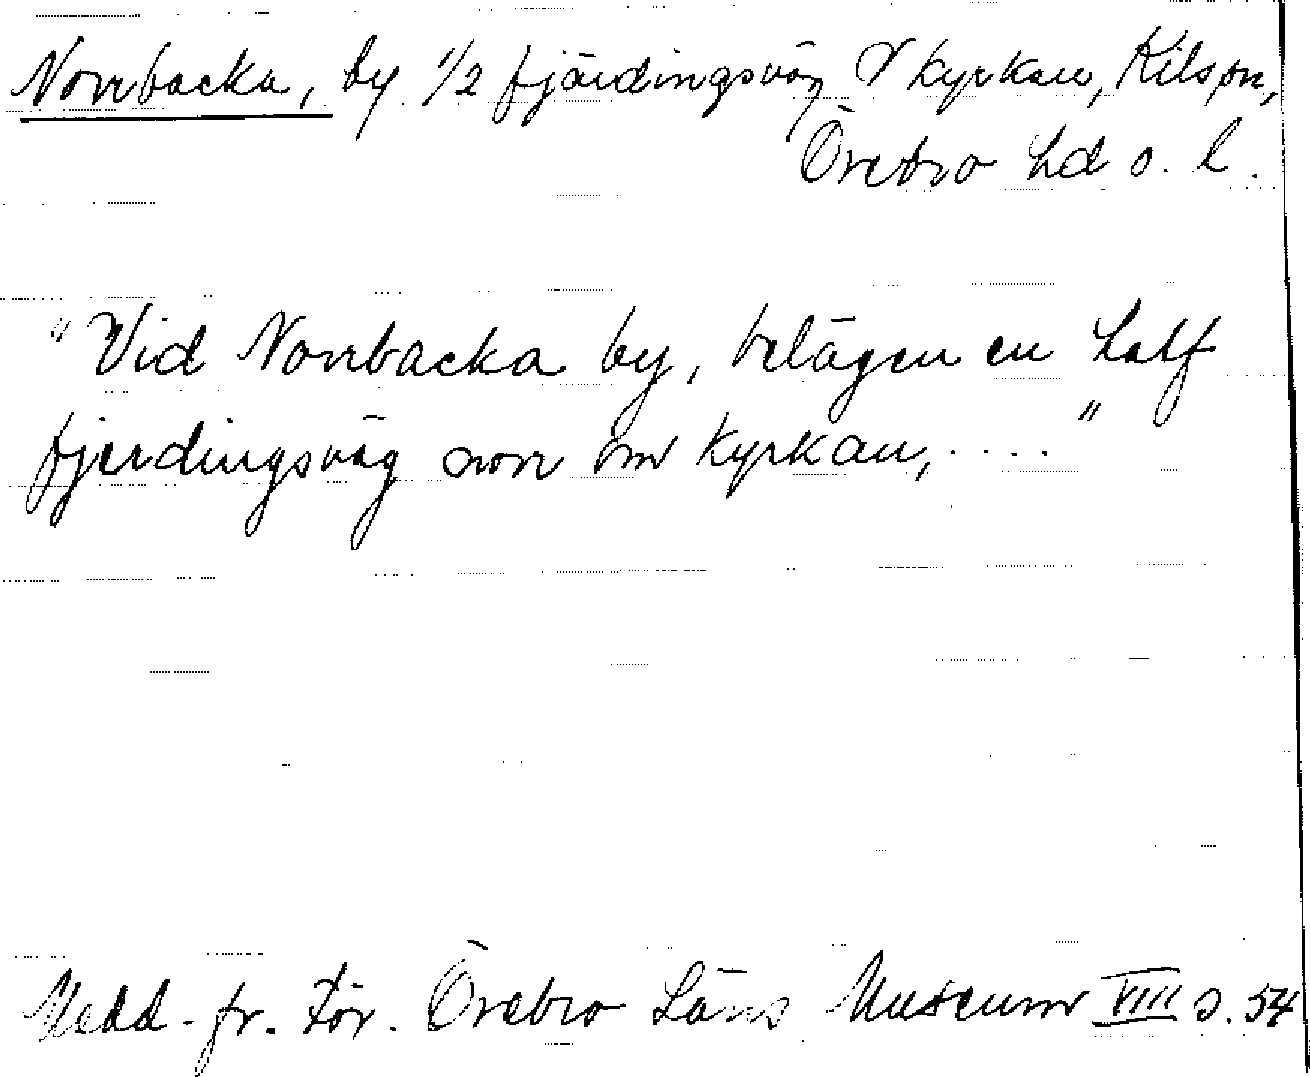 Norrbacka, by 1/2 fjärdingsväg N kyrkan, Kils sn,
Örebro hd o. l.
"Vid Norrbacka by, belägen en half
fjerdingsväg norr om kyrkan, . . . . "
Medd. fr. För. Örebro Läns Museum VIII s. 54